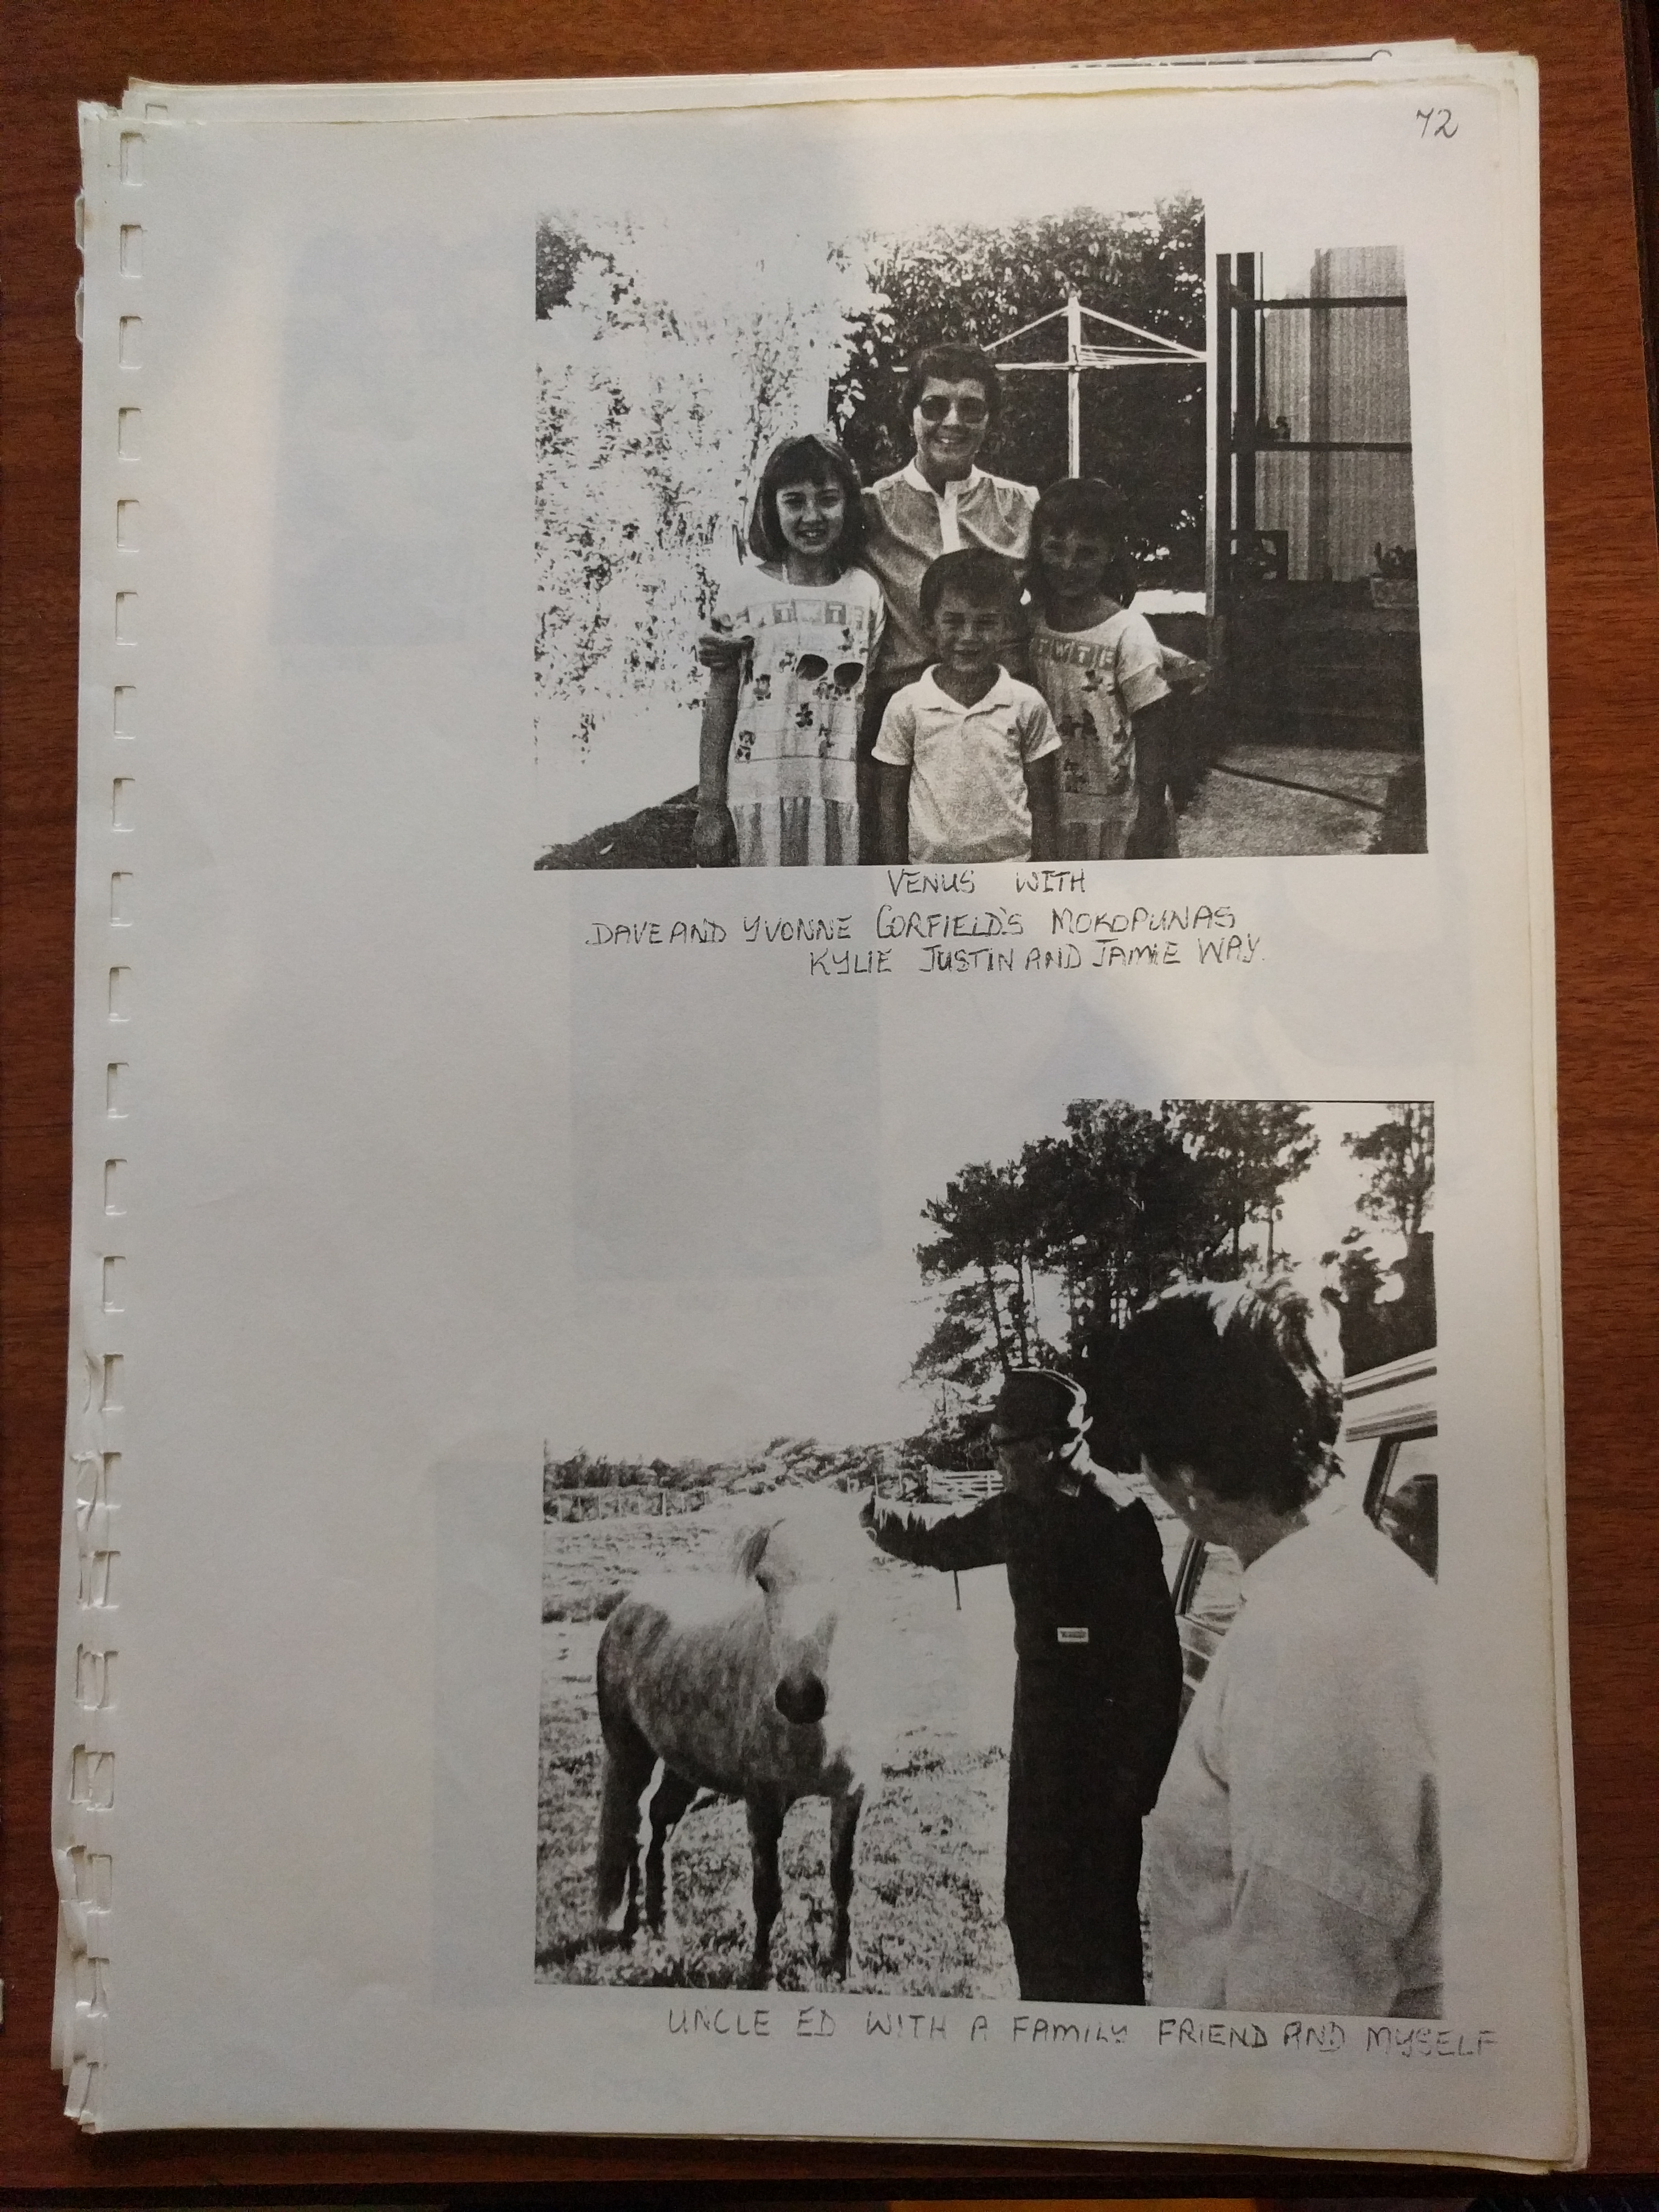 72
TWTF
TWTF
VENUS WITH
DAVE AND YVONNE CORFIELD'S MOKOPUNAS
KYLIE JUSTIN AND JAMIE WAY.
UNCLE ED WITH A FAMILY FRIEND AND MYSELF